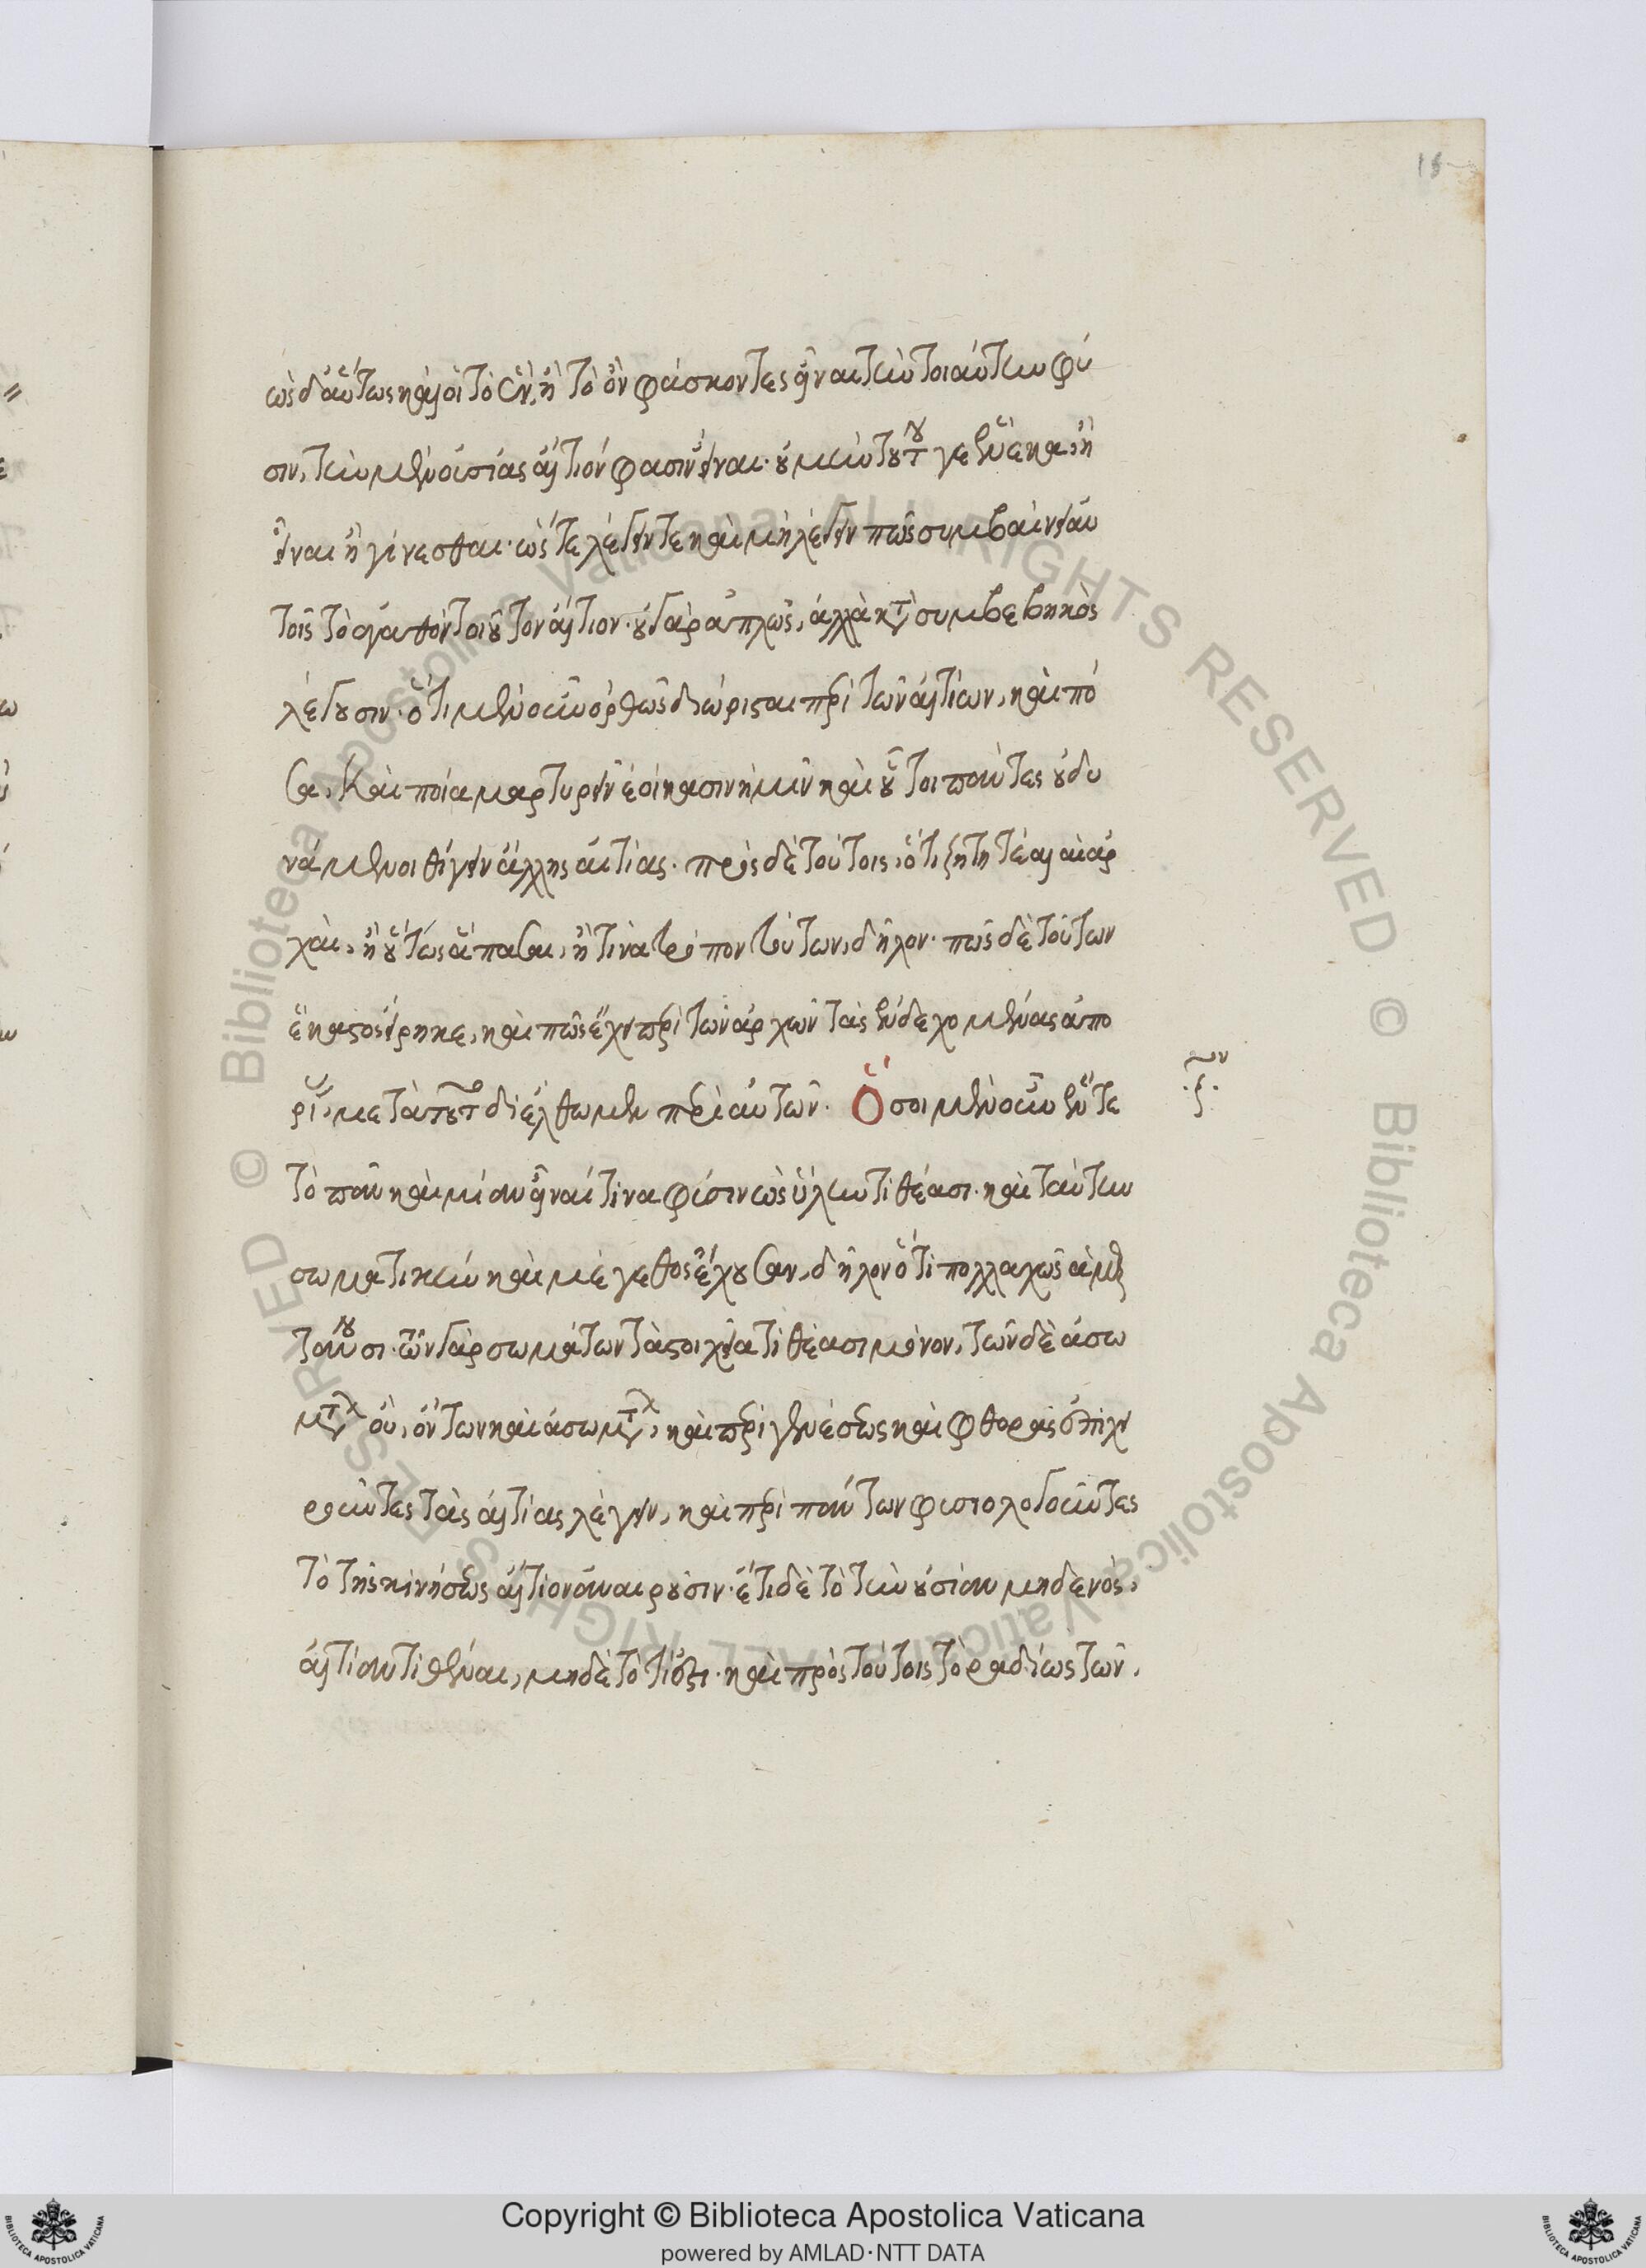 15
ὡς δ' αὔτως καὶ οἱ τὸ ἓν, ἢ τὸ ὂν φάσκοντες εἶναι τὴν τοιαύτην φύ
σιν, τῆς μὲν οὐσίας αἴτιόν φασιν εἶναι· οὐ μὴν τούτου γε ἕνεκα, ἢ
εἶναι ἢ γίνεσθαι· ὥστε λέγειν τε καὶ μὴ λέγειν πως συμβαίνει αὐ
τοῖς τὸ ἀγαθὸν τοιοῦτον αἴτιον· οὐ γὰρ ἁπλῶς, ἀλλὰ κατὰ συμβεβηκὸς
λέγουσιν· ὅτι μὲν οὖν ὀρθῶς διώρισται περὶ τῶν αἰτίων, καὶ πό
σα, καὶ ποῖα μαρτυρεῖν ἐοίκασιν ἡμῖν καὶ οὗτοι πάντες οὐ δυ
νάμενοι θίγειν ἄλλης αἰτίας· πρὸς δὲ τούτοις, ὅτι ζητητέαι αἱ ἀρ
χαὶ, ἢ οὕτως ἅπασαι, ἢ τινὰ τρόπον τούτων, δῆλον· πῶς δὲ τούτων
ἕκαστος εἴρηκε, καὶ πῶς ἔχει περὶ τῶν ἀρχῶν τὰς ἐνδεχομένας ἀπο
ρίας, μετὰ τοῦτο διέλθωμεν περὶ αὐτῶν. Ὅσοι μὲν οὖν ἕν τε
τὸ πᾶν καὶ μίαν εἶναί τινα φύσιν ὡς ὕλην τιθέασι· καὶ ταύτην
σωματικὴν καὶ μέγεθος ἔχουσαν, δῆλον ὅτι πολλαχῶς ἁμαρ
τάνουσι· τῶν γὰρ σωμάτων τὰ στοιχεῖα τιθέασι μόνον, τῶν δὲ ἀσω
μάτων οὔ, ὄντων καὶ ἀσωμάτων, καὶ περὶ γενέσεως καὶ φθορᾶς ἐπιχει
ροῦντες τὰς αἰτίας λέγειν, καὶ περὶ πάντων φυσιολογοῦντες
τὸ τῆς κινήσεως αἴτιον ἀναιροῦσιν· ἔτι δὲ τὸ τὴν οὐσίαν μηδενὸς,
αἰτίαν τιθέναι, μηδὲ τὸ τί ἐστι· καὶ πρὸς τούτοις τὸ ῥαδίως τῶν
Copyright © Biblioteca Apostolica Vaticana
powered by AMLAD·NTT DATA
© Biblioteca Apostolica Vaticana ALL RIGHTS RESERVED © Biblioteca Apostolica Vaticana ALL RIGHTS RESERVED
BIBLIOTECA APOSTOLICA VATICANA
BIBLIOTECA APOSTOLICA VATICANA